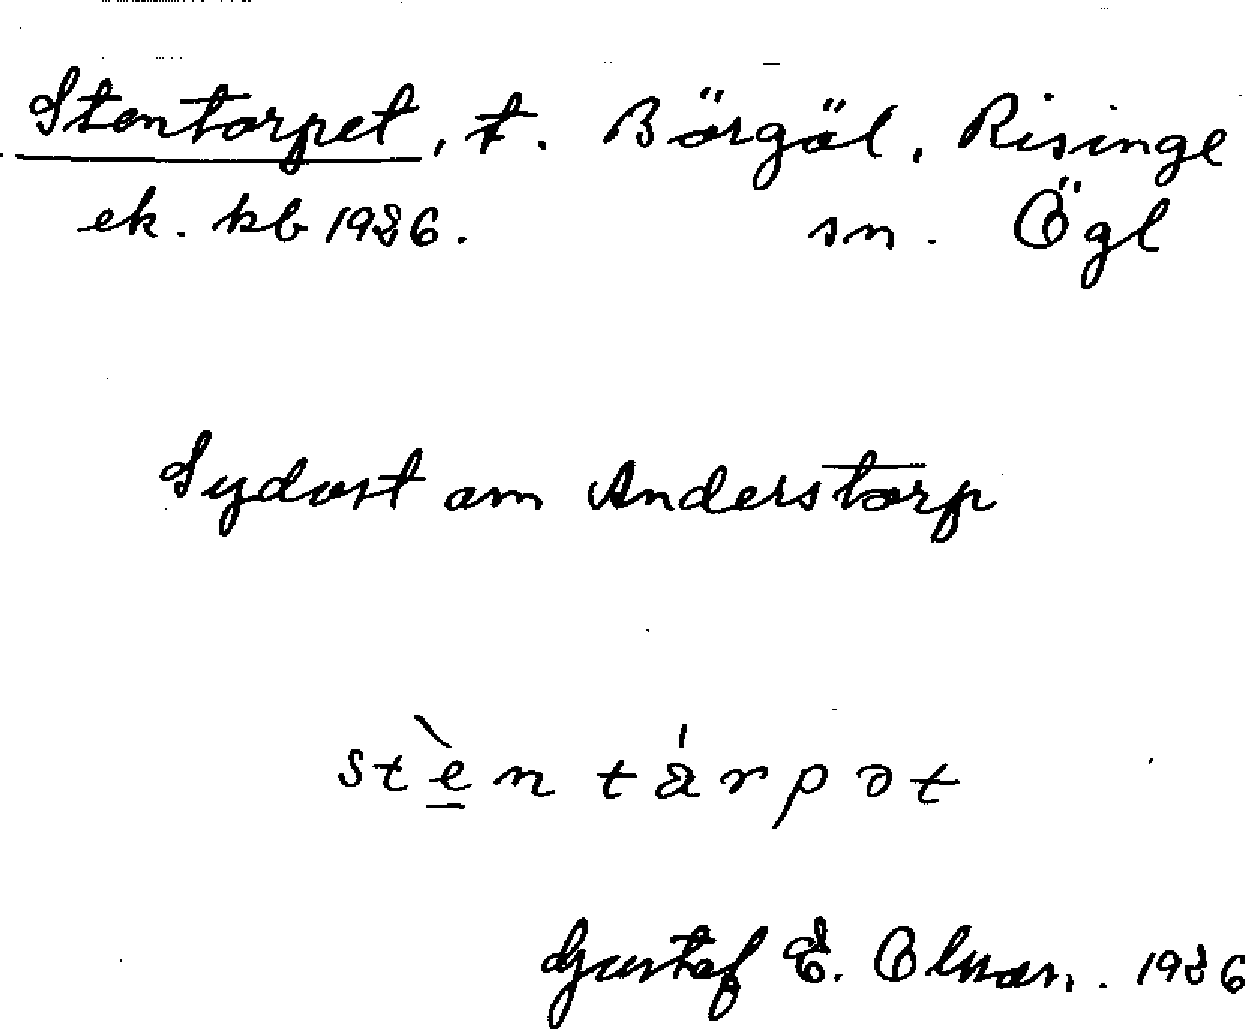 Stentorpet, t. Börgöl, Risinge
ek. kb 1936. sn. Ögl
Sydost om Anderstorp
stèntårpət
Gustaf E. Olsson. 1936